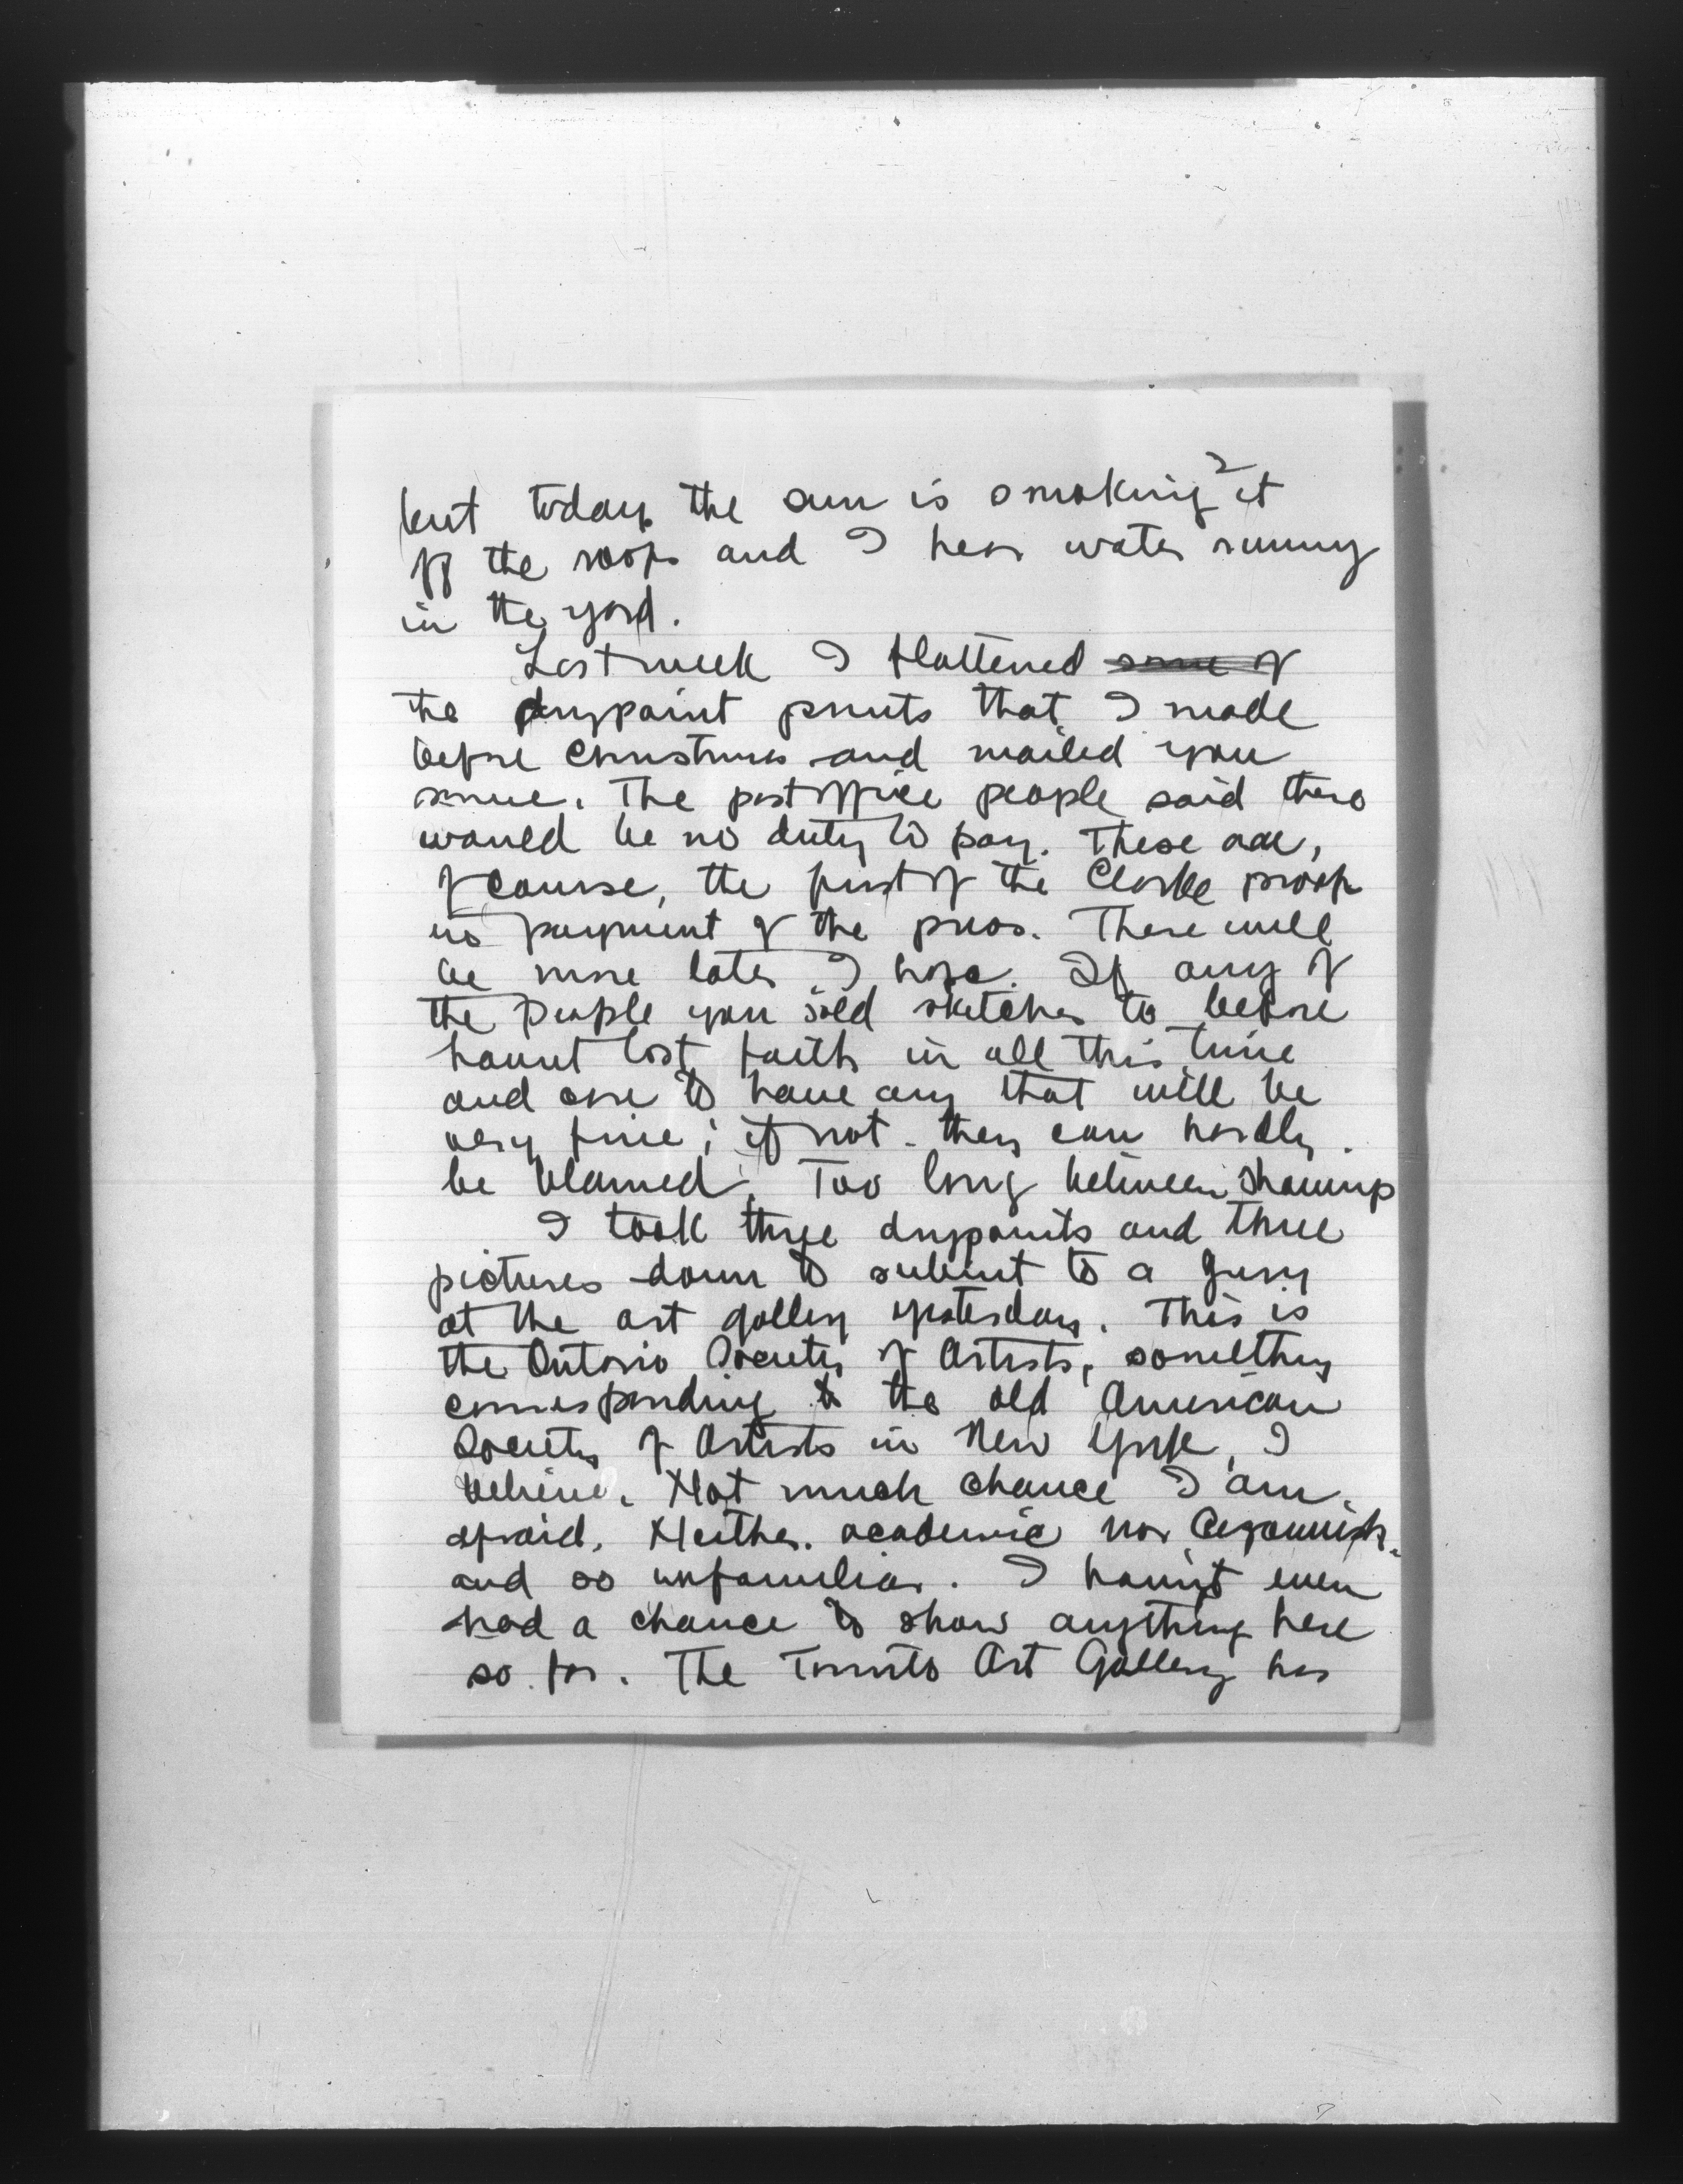 2
but today the sun is smoking it
off the roofs and I hear water running
in the yard.
Last week I flattened some of
the drypoint prints that I made
before Christmas and mailed you
some. The post office people said there
would be no duty to pay. These are,
of course, the first of the Clarke proofs
in payment of the press. There will
be more later I hope. If any of
the people you sold sketches to before
havent lost faith in all this time
and care to have any that will be
very fine; if not - they can hardly
be blamed. Too long between showings
I took three drypoints and three
pictures down to submit to a jury
at the art gallery yesterday. This is
the Ontario Society of Artists, something
corresponding to the old American
Society of Artists in New York, I
believe. Not much chance I am
afraid. Neither academic nor
and so unfamiliar. I havn't even
had a chance to show anything here
so far. The Toronto Art Gallery has